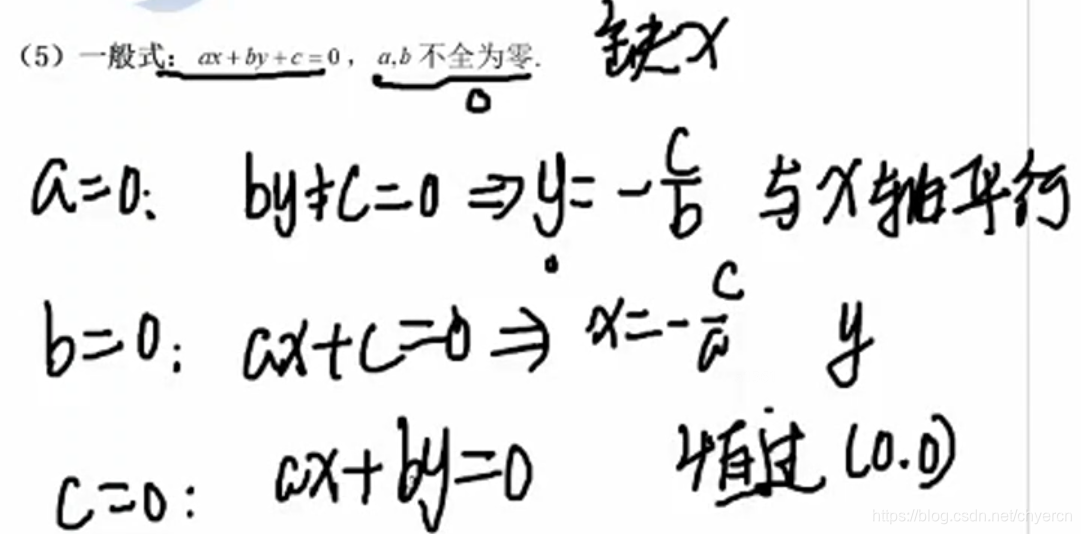 (5) 一般式: ax+by+c=0, a,b 不全为零. 缺x
0
a=0: by+c=0 ⇒ y=-c/b 与x轴平行
b=0: ax+c=0 ⇒ x=-c/a y
c=0: ax+by=0 恒过 (0.0)
https://blog.csdn.net/chyercn